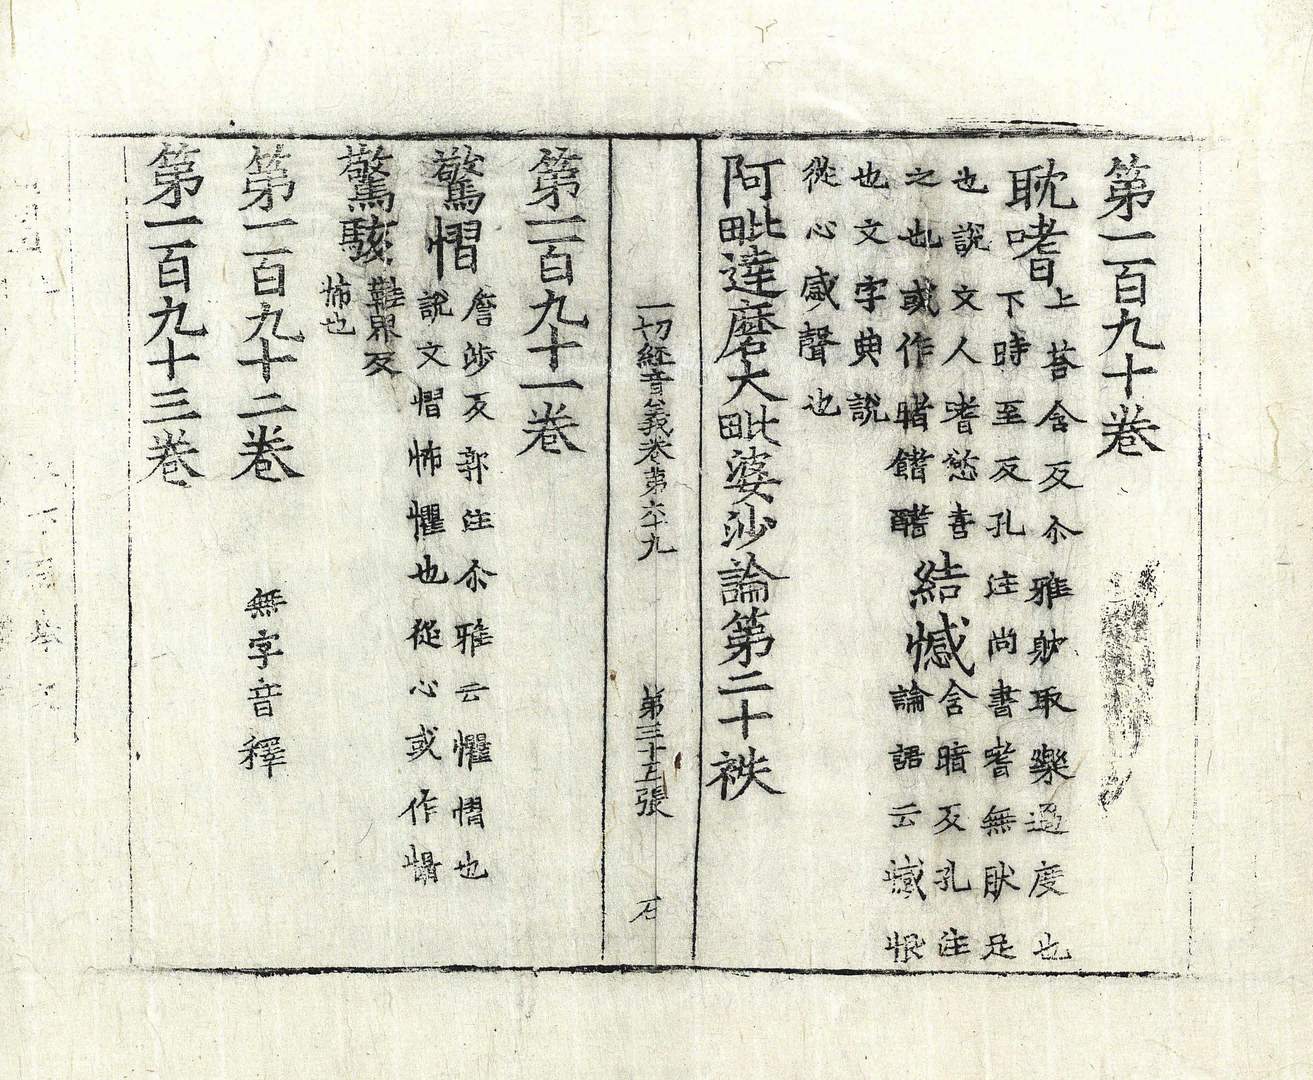 第一百九十卷
耽嗜上荅含反尒雅躭取樂過度也
下時至反孔注尚書嗜無猒足
也說文人嗜慾喜
之也或作睹䭱醏
結憾含暗反孔注
論語云憾恨
也文字典說
從心感聲也
阿毗達磨大毗婆沙論第二十袟
一切經音義卷第六十九 第三十五張 石
第一百九十一卷
驚慴詹涉反郭注尒雅云懼慴也
說文慴怖懼也從心或作懾
驚駭鞋界反
怖也
第一百九十二卷
無字音釋
第一百九十三卷